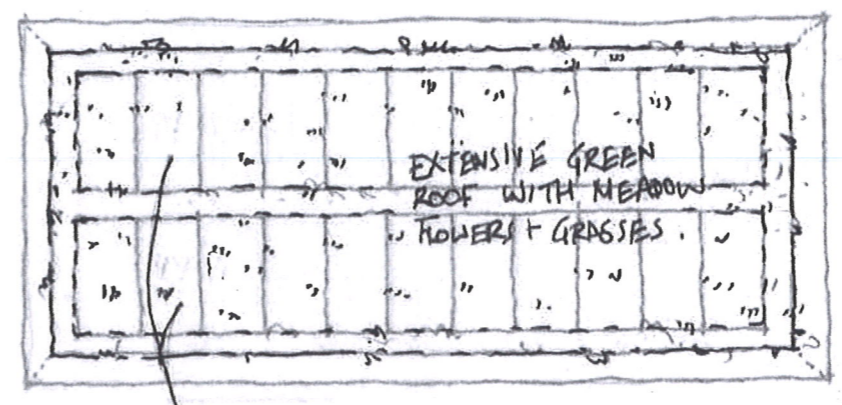 EXTENSIVE GREEN
ROOF WITH MEADOW
FLOWERS + GRASSES.